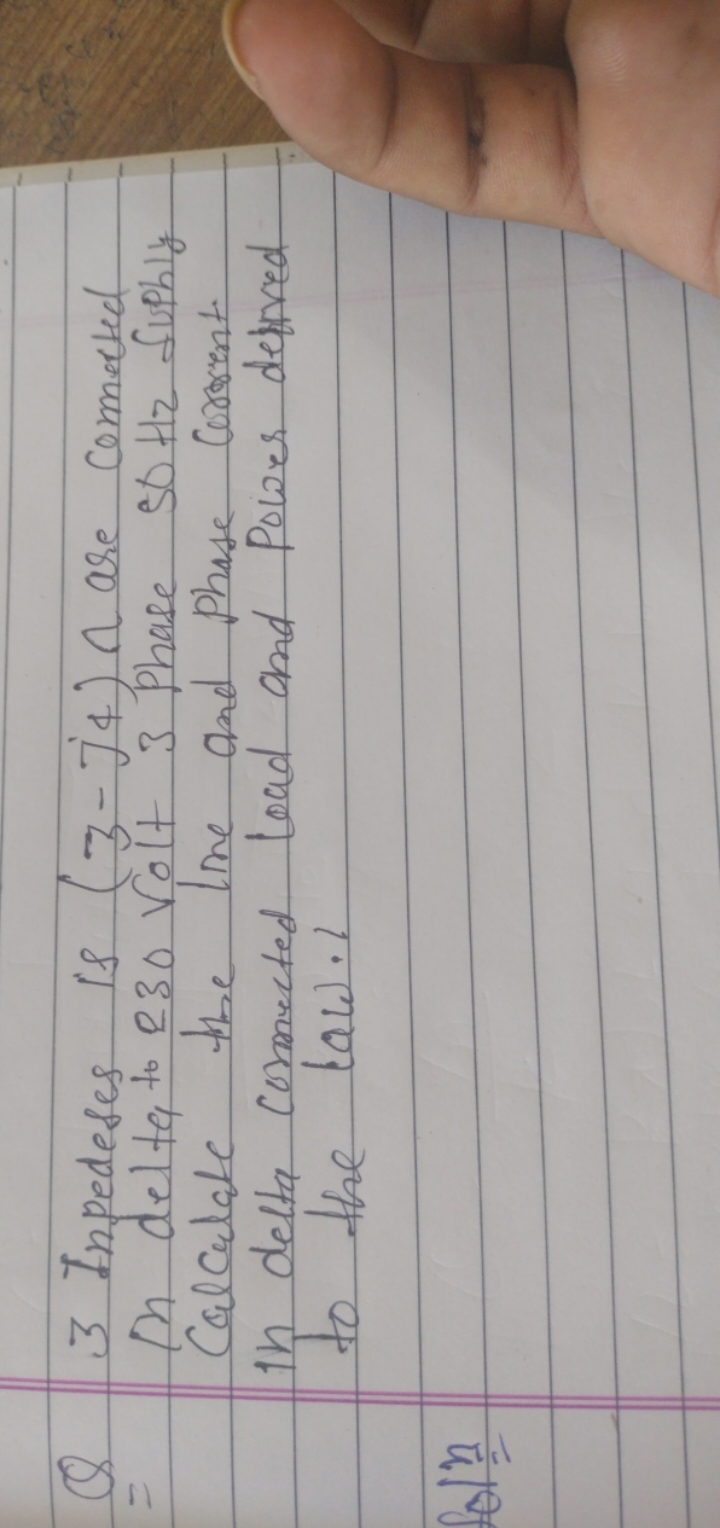 Q 3 Inpedeses is (3-j4) Ω are connected
= In delta to 230 Volt 3 Phase 50 Hz Suphly
Calculate the line and Phase Corrent
In delta connected load and Power
to the law.!
Soln
=